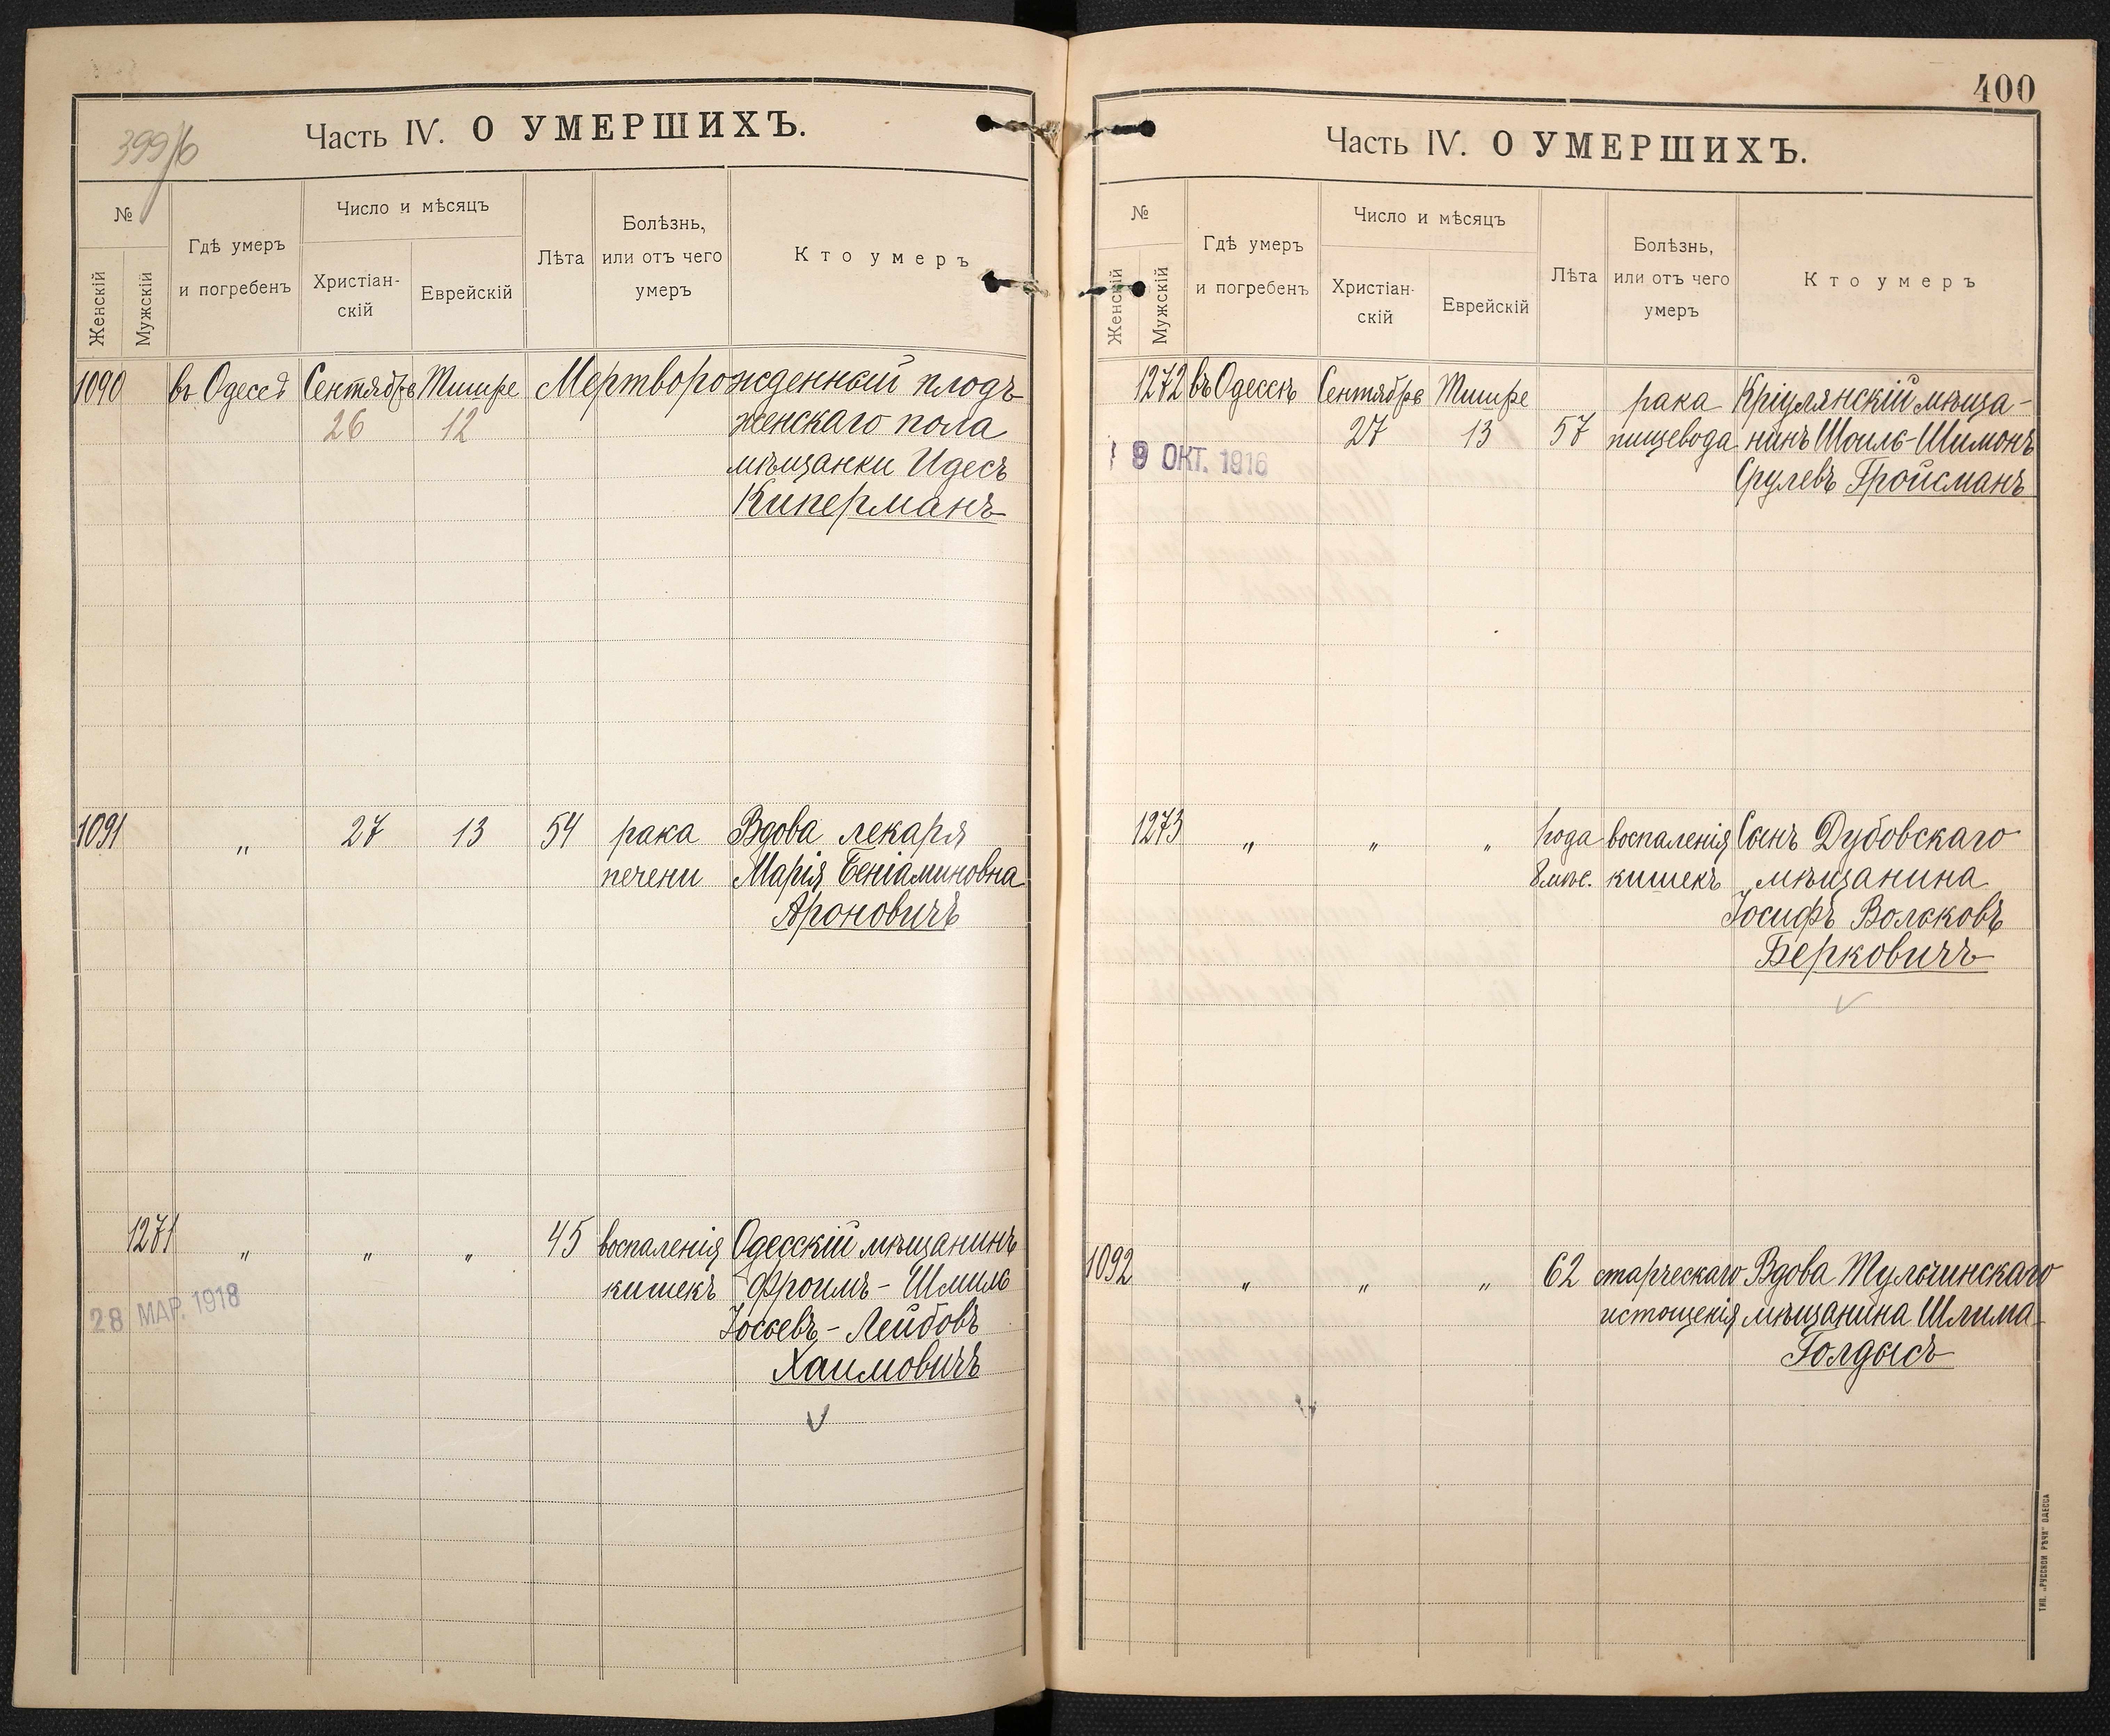 399/б
Часть IV. О УМЕРШИХЪ.
№
Женскій
Мужскій
Гдѣ умеръ
и погребенъ
Число и мѣсяцъ
Христіан-
скій
Еврейскій
Лѣта
Болѣзнь,
или отъ чего
умеръ
Кто умеръ
1090 въ Одессѣ Сентябрь Тишре Мертворожденный плодъ
26 12 женскаго пола
мѣщанки Идесъ
Киперманъ
1091 „ 27 13 54 рака Вдова лекаря
печени Марія Беніаминовна
Ароновичъ
1271 „ „ „ 45 воспаленія Одесскій мѣщанинъ
кишекъ Фроимъ-Шмиль
28 МАР. 1918
Іосьевъ-Лейбовъ
Хаимовичъ
400
Часть IV. О УМЕРШИХЪ.
№
Женскій
Мужскій
Гдѣ умеръ
и погребенъ
Число и мѣсяцъ
Христіан-
скій
Еврейскій
Лѣта
Болѣзнь,
или отъ чего
умеръ
Кто умеръ
1272 въ Одессѣ Сентябрь Тишре рака Кріулянскій мѣща-
27 13 57 пищевода нинъ Шоиль-Шимонъ
19 ОКТ. 1916
Срулевъ Гройсманъ
1273 „ „ „ 1 года воспаленія Сынъ Дубовскаго
8 мѣс. кишекъ мѣщанина
Іосифъ Вольковъ
Берковичъ
1092 „ „ „ 62 старческаго Вдова Тульчинскаго
истощенія мѣщанина Шлима
Голдысъ
ТИП. „РУССКОЙ РѢЧИ" ОДЕССА